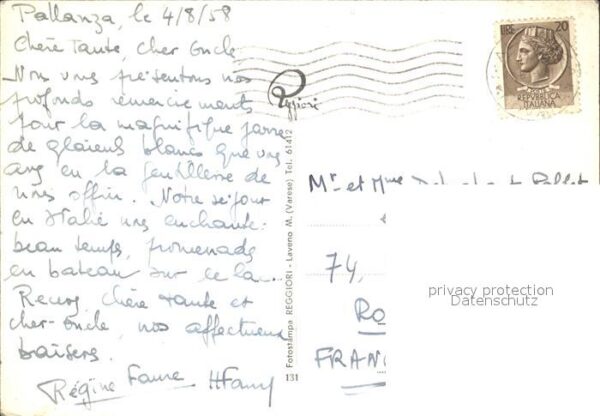 Pallanza, le 4/8/58
Chère Tante, cher Oncle
Nous vous présentons nos
profonds remerciements
pour la magnifique gerbe
de glaïeuls blancs que vous
avez eu la gentillesse de
nous offrir. Notre séjour
en Italie nous enchante:
beau temps, promenade
en bateau sur le lac...
Recevez, chère tante et
cher oncle, nos affectueux
baisers.
Régine Faure HFaure
Reggiori
Fotostampa REGGIORI - Laveno M. (Varese) Tel. 61412
131
LIRE 20
REPUBBLICA
ITALIANA
Mr et Mme
74,
RO
FRAN
privacy protection
Datenschutz